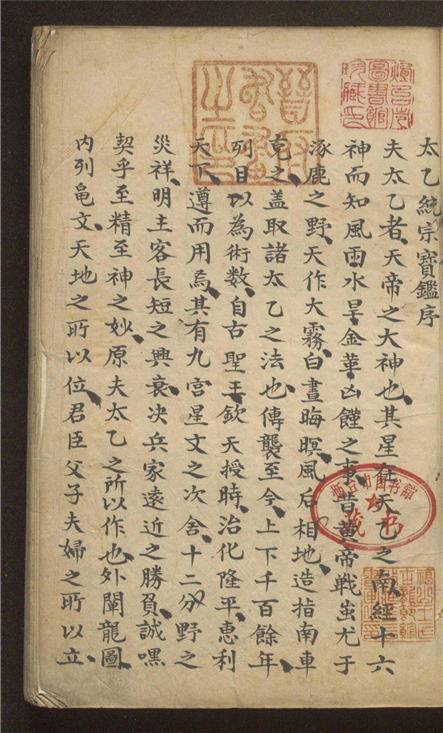 太乙統宗寶鑑序
夫太乙者天帝之大神也其星在天乙之南經十六
神而知風雨水旱金革凶饉之事昔黃帝戰蚩尤于
涿鹿之野天作大霧白晝晦暝風后相地造指南車
克之蓋取諸太乙之法也傳襲至今上下千百餘年
列目以為術數自古聖王欽天授時治化隆平惠利
天下遵而用焉其有九宮星文之次舍十二分野之
災祥明主客長短之興衰决兵家遠近之勝負誠嘿
契乎至精至神之妙原夫太乙之所以作也外闡龍圖
内列龟文天地之所以位君臣父子夫婦之所以立